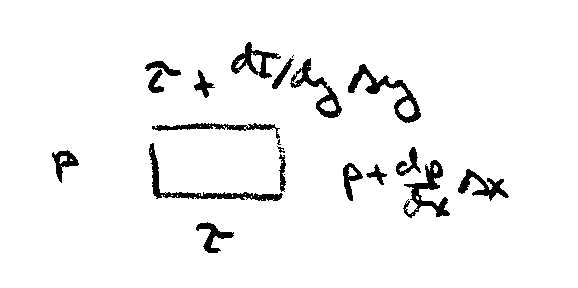 τ + dτ/dy Δy
p
p + dp/dx Δx
τ